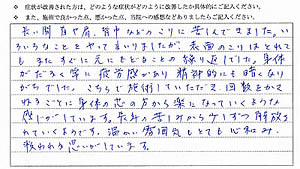 ※ 症状が改善された方は、どのような症状がどのように改善したか具体的にご記入ください。
※ また、施術で良かった点、悪かった点、当院への感想などありましたらご記入ください。
長い間首や肩、背中などのこりに苦しんできました。い
ろいろなことをやってまいりましたが、表面のこりはとれて
もまたすぐに元にもどることの繰り返しでした。身体
がだるく常に疲労感があり精神的にも暗くなり
がちでした。こちらで施術していただき、回数をかさ
ねるごとに身体の芯の方から楽になっていくような
感じがしています。長年の苦しみから少しずつ解放さ
れていくようです。温かい雰囲気もとても心和み、
救われる思いがしています。